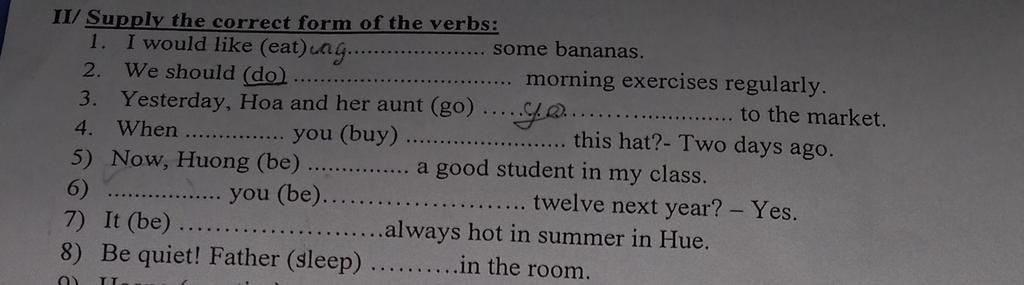 II/ Supply the correct form of the verbs:
1. I would like (eat) ing...................... some bananas.
2. We should (do) ................................... morning exercises regularly.
3. Yesterday, Hoa and her aunt (go) .....go......................... to the market.
4. When ................ you (buy) .......................... this hat?- Two days ago.
5) Now, Huong (be) ................ a good student in my class.
6) .................. you (be)........................ twelve next year? – Yes.
7) It (be) ........................always hot in summer in Hue.
8) Be quiet! Father (sleep) ..........in the room.